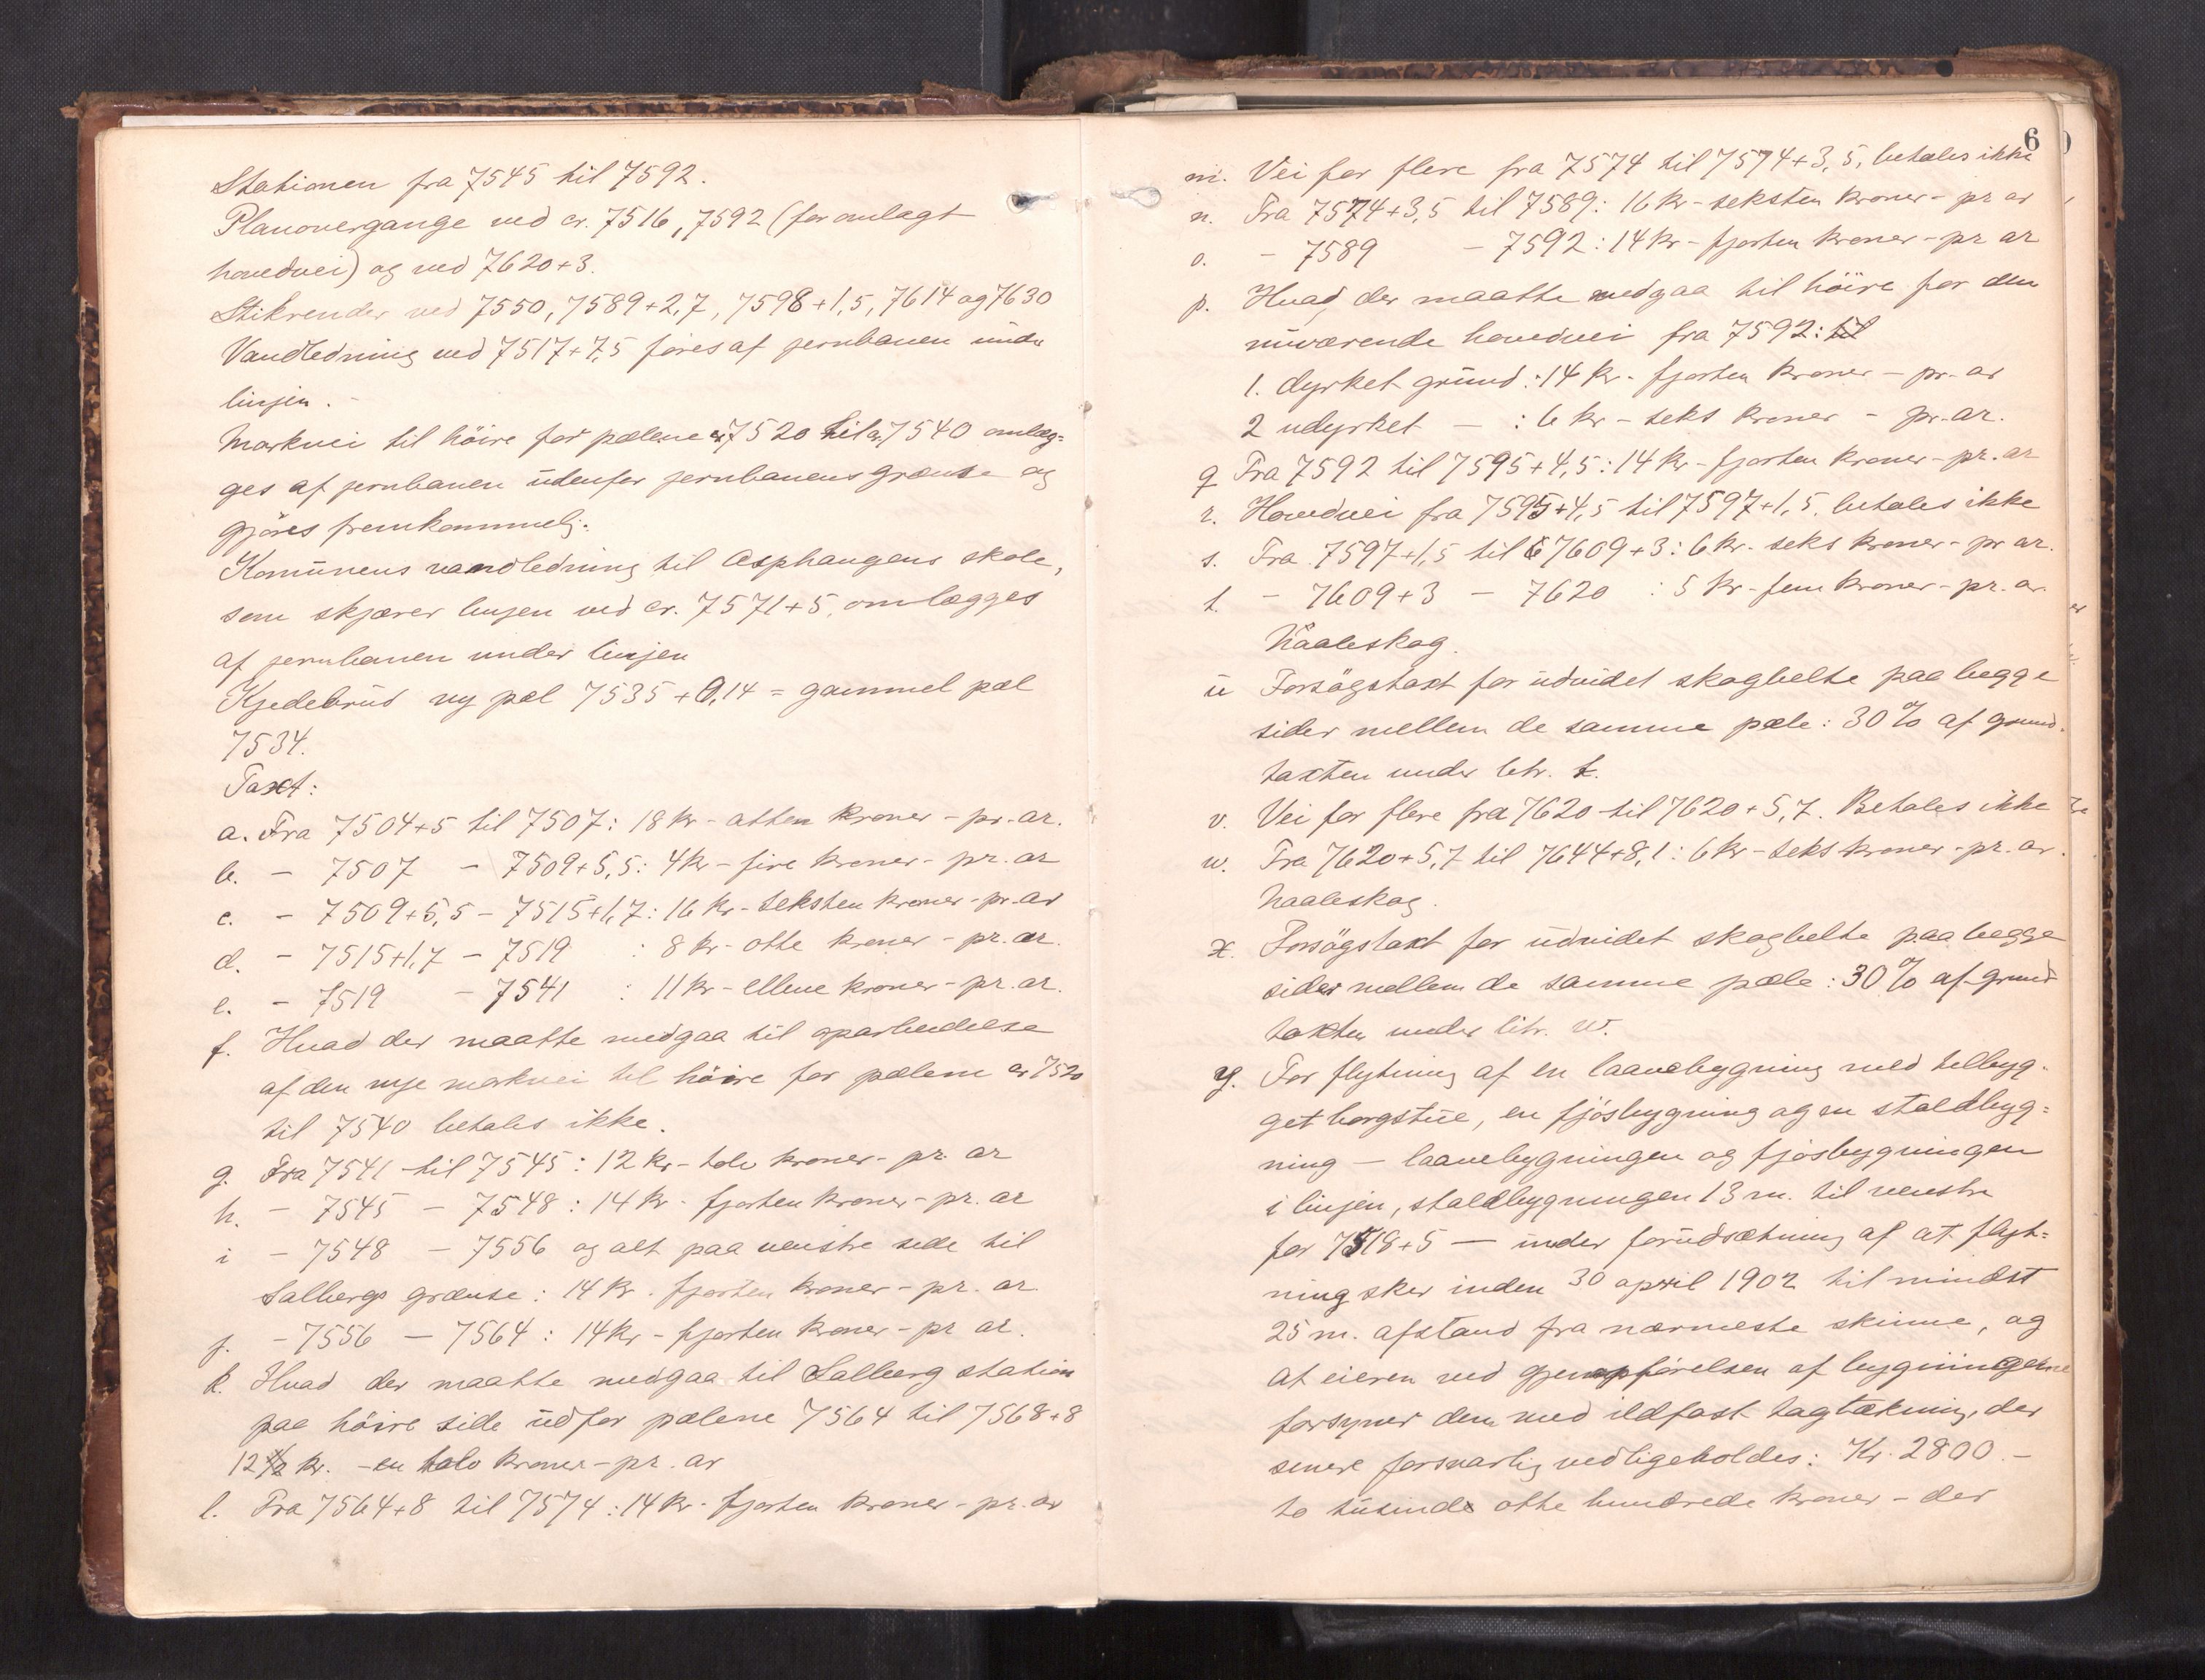 Stationen fra 7545 til 7592.
Planovergange ved cr. 7516, 7592 (for omlagt
hovedvei) og ved 7620+3.
Stikrender ved 7550, 7589+2,7, 7598+1,5, 7614 og 7630
Vandledning ved 7517+7,5 føres af jernbanen under
linjen.-
Markvei til höire for pælene cr 7520 til cr 7540 omlæg=
ges af jernbanen udenfor jernbanens grænse og
gjøres fremkommelig.
Komunens vandledning til Asphaugens skole,
som skjærer linjen ved cr. 7571+5, omlægges
af jernbanen under linjen
Kjedebrud ny pæl 7535 + 0,14 = gammel pæl
7534.
Taxt:
a. Fra 7504+5 til 7507: 18 kr - atten kroner - pr. ar.
b. - 7507 - 7509+5,5: 4 kr - fire kroner - pr. ar
c. - 7509+5,5 - 7515+1,7: 16 kr - seksten kroner - pr. ar
d. - 7515+1,7 - 7519 : 8 kr - otte kroner - pr. ar.
e. - 7519 - 7541 : 11 kr - elleve kroner - pr. ar.
f. Hvad der maatte medgaa til oparbeidelse
af den nye markvei til höire for pælene cr 7520
til 7540 betales ikke.
g. Fra 7541 til 7545: 12 kr - tolv kroner - pr. ar
h. - 7545 - 7548: 14 kr - fjorten kroner - pr. ar
i - 7548 - 7556 og alt paa venstre side til
Salbergs grænse: 14 kr. fjorten kroner - pr. ar
j. - 7556 - 7564: 14 kr - fjorten kroner - pr ar.
k. Hvad der maatte medgaa til Salberg station
paa höire side udfor pælene 7564 til 7568+8
12 kr. - tolv kroner - pr. ar
l. Fra 7564+8 til 7574: 14 kr - fjorten kroner - pr. ar
6
m. Vei for flere fra 7574 til 7574+3,5, betales ikke
n. Fra 7574+3,5 til 7589: 16 kr - seksten kroner - pr ar
o. - 7589 - 7592: 14 kr - fjorten kroner - pr ar
p. Hvad der maatte medgaa til höire for den
nuværende hovedvei fra 7592: til
1. dyrket grund: 14 kr - fjorten kroner - pr. ar
2 udyrket - : 6 kr - seks kroner - pr. ar.
q Fra 7592 til 7595+4,5: 14 kr - fjorten kroner - pr. ar
r. Hovedvei fra 7595+4,5 til 7597+1,5. betales ikke
s. Fra 7597+1,5 til 7609+3: 6 kr. seks kroner - pr ar.
t. - 7609+3 - 7620 : 5 kr - fem kroner - pr. ar
Naaleskog.
u Forsøgstaxt for udvidet skogbelte paa begge
sider mellem de samme pæle: 30% af grund-
taxten under litr. t.
v. Vei for flere fra 7620 til 7620+5,7. Betales ikke
w. Fra 7620+5,7 til 7644+8,1: 6 kr - seks kroner - pr. ar.
Naaleskog.
x. Forsøgstaxt for udvidet skogbelte paa begge
sider mellem de samme pæle: 30% af grund
taxten under litr. w.
y. For flytning af en laanebygning med tilbyg-
get borgstue, en fjösbygning og en staldbyg=
ning - laanebygningen og fjösbygningen
i linjen, staldbygningen 13 m. til venstre
for 7518+5 - under forudsætning af at flyt=
ning sker inden 30 april 1902 til mindst
25 m. afstand fra nærmeste skinne, og
at eieren ved gjenopførelsen af bygningerne
forsyner dem med ildfast tagtækning, der
senere forsvarlig vedligeholdes: Kr. 2800.-
to tusinde otte hundrede kroner - der